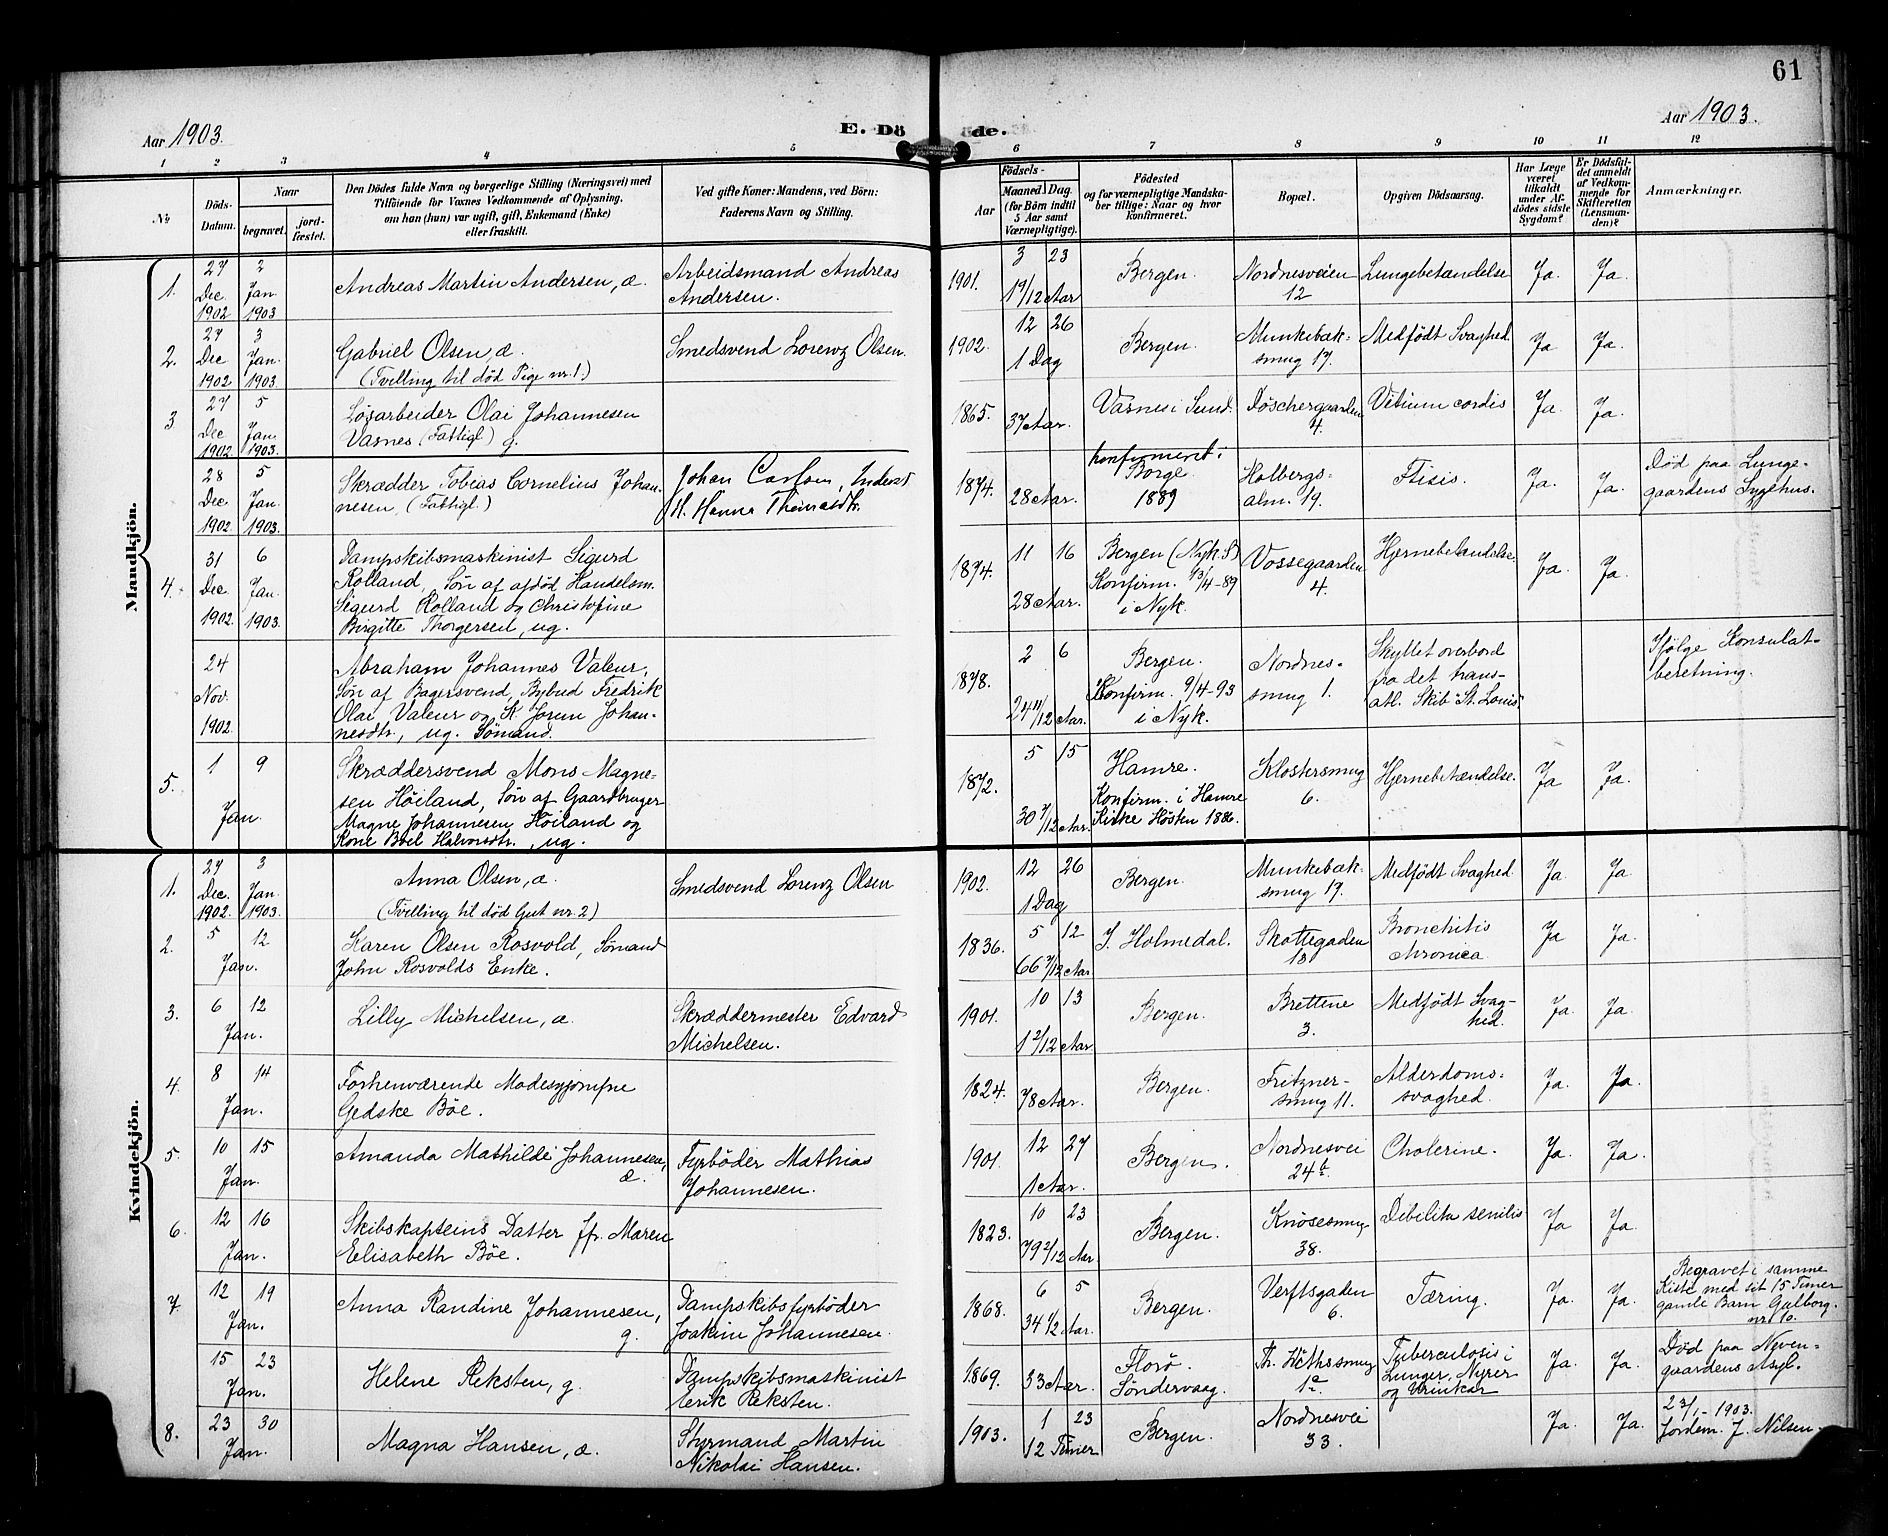 61
Aar 1903.
E. Dö
öde.
Aar 1903.
1 2 3 4 5 6 7 8 9 10 11 12
№
Döds-
Datum.
Naar
begravet.
jord-
fæstet.
Den Dödes fulde Navn og borgerlige Stilling (Næringsvei) med
Tilföiende for Voxnes Vedkommende af Oplysning,
om han (hun) var ugift, gift, Enkemand (Enke)
eller fraskilt.
Ved gifte Koner: Mandens, ved Börn:
Faderens Navn og Stilling.
Födsels-
Aar
Maaned. Dag.
(for Börn indtil
5 Aar samt
Værnepligtige).
Födested
og for værnepligtige Mandska-
ber tillige: Naar og hvor
konfirmeret.
Bopæl.
Opgiven Dödsaarsag.
Har Læge
været
tilkaldt
under Af-
dödes sidste
Sygdom?
Er Dödsfal-
det anmeldt
af Vedkom-
mende for
Skifteretten
(Lensman-
den)?
Anmærkninger.
Mandkjön.
1.
27
Dec.
1902
2
Jan.
1903
Andreas Martin Andersen, æ.
Arbeidsmand Andreas
Andersen.
1901.
3 23
1 9/12 Aar
Bergen.
Nordnesveien
12
Lungebetændelse
Ja.
Ja.
2.
27
Dec
1902
3
Jan.
1903.
Gabriel Olsen, æ.
(Tvilling til död Pige nr. 1.)
Smedsvend Lorenz Olsen.
1902.
12 26
1 Dag
Bergen.
Munkebæk-
smug 17.
Medfödt Svaghed
Ja
Ja.
3
27
Dec
1902
5
Jan.
1903.
Løsarbeider Olai Johannesen
Vasnes (Fattigl.) g.
1865.
37 Aar.
Vasnes i Sund.
Döschergaarden
4.
Vitium cordis
Ja.
Ja.
28
Dec
1902
5
Jan.
1903.
Skrædder Tobias Cornelius Johan-
nesen, (Fattigl.)
Johan Carlsen, Inderst
H. Hanna
1874.
28 Aar.
konfirmeret i
Borge
1889
Holbergs-
alm. 19.
Ftisis.
Ja.
Ja.
Död paa Lunge-
gaardens Sygehus.
4.
31
Dec
1902.
6
Jan.
1903.
Dampskibsmaskinist Sigurd
Rolland, Sön af afdöd Handelsm.
Sigurd Rolland og Christofine
Birgitte Thorgersen, ug.
1874.
11 16
28 Aar.
Bergen (Nyk. S)
Konfirm. 4-89
i Nyk.
Vossegaarden
4.
Hjernebetændelse.
Ja.
Ja.
24
Nov.
1902.
Abraham Johannes Valeur,
Sön af Bagersvend, Bybud Fredrik
Olai Valeur og H. Joren Johan-
nesdtr., ug. Sömand.
1878.
2 6
24 11/12 Aar.
Bergen.
Konfirm. 9/4-93
i Nyk.
Nordnes-
smug 1.
Skyllet overbord
fra det trans-
atl. Skib "St. Louis"
Ifölge Konsulat-
beretning.
5.
1 9
Jan.
Skræddersvend Mons Magne-
sen Höiland, Sön af Gaardbruger
Magne Johannesen Höiland og
Kone Boel Halvorsdtr., ug.
1872.
5 15
30 7/12 Aar.
Hamre.
Konfirm. i Hamre
Kirke Hösten 1886.
Klostersmug
6.
Hjernebetændelse.
Ja
Ja.
Kvindekjön.
1.
27
Dec.
1902.
3
Jan.
1903.
Anna Olsen, æ.
(Tvilling til död Gut nr. 2)
Smedsvend Lorenz Olsen
1902.
12 26
1 Dag
Bergen.
Munkebæk-
smug 17.
Medfödt Svaghed
Ja.
Ja
2.
5 12
Jan.
Karen Olsen Rosvold, Sömand
John Rosvolds Enke.
1836.
5 12
66 7/12 Aar
Y. Holmedal.
Skottegaden
18
Bronchitis
chronica
Ja
Ja.
3.
6 12
Jan.
Lilly Michelsen, æ.
Skræddermester Edvard
Michelsen.
1901.
10 13
1 2/12 Aar
Bergen.
Brettene
3.
Medfödt Svag-
hed.
Ja.
Ja.
4.
8 14
Jan.
Forhenværende Modesyjomfru
Gedske Böe.
1824.
78 Aar.
Bergen.
Fritzner-
smug 11.
Alderdoms-
svaghed.
Ja.
Ja.
5.
10 15
Jan.
Amanda Mathilde Johannesen,
æ.
Fyrböder Mathias
Johannesen.
1901.
12 27
1 Aar.
Bergen.
Nordnesvei
24 b.
Cholerine.
Ja.
Ja.
6.
12 16
Jan.
Skibskapteins Datter fr. Maren
Elisabeth Böe.
1823.
10 23
79 2/12 Aar
Bergen.
Knösesmug
38.
Dibilita senilis
Ja
Ja.
7.
12 19
Jan.
Anna Randine Johannesen,
g.
Dampskibsfyrböder
Joakim Johannesen.
1868.
6 5
34 1/2 Aar.
Bergen.
Verftsgaden
6.
Tæring.
Ja.
Ja.
Begravet i samme
Kiste med sit 15 Timer
gamle Barn Gulborg.
nr. 10.
15 23
Jan.
Helene Reksten, g.
Dampskibsmaskinist
Eerik Reksten.
1869.
33 Aar.
Florö
Söndervaag.
smug
1a.
Tuberculosis i
Lunger, Nyrer
og Urinkar
Ja.
Ja.
Död paa Neven-
gaardens Asyl.
8.
23 30
Jan.
Magna Hansen, æ.
Styrmand Martin
Nikolai Hansen.
1903.
1 23
12 Timer
Bergen.
Nordnesvei
33.
Ja.
Ja.
23/1-1903.
Jordem. J. Nilsen.